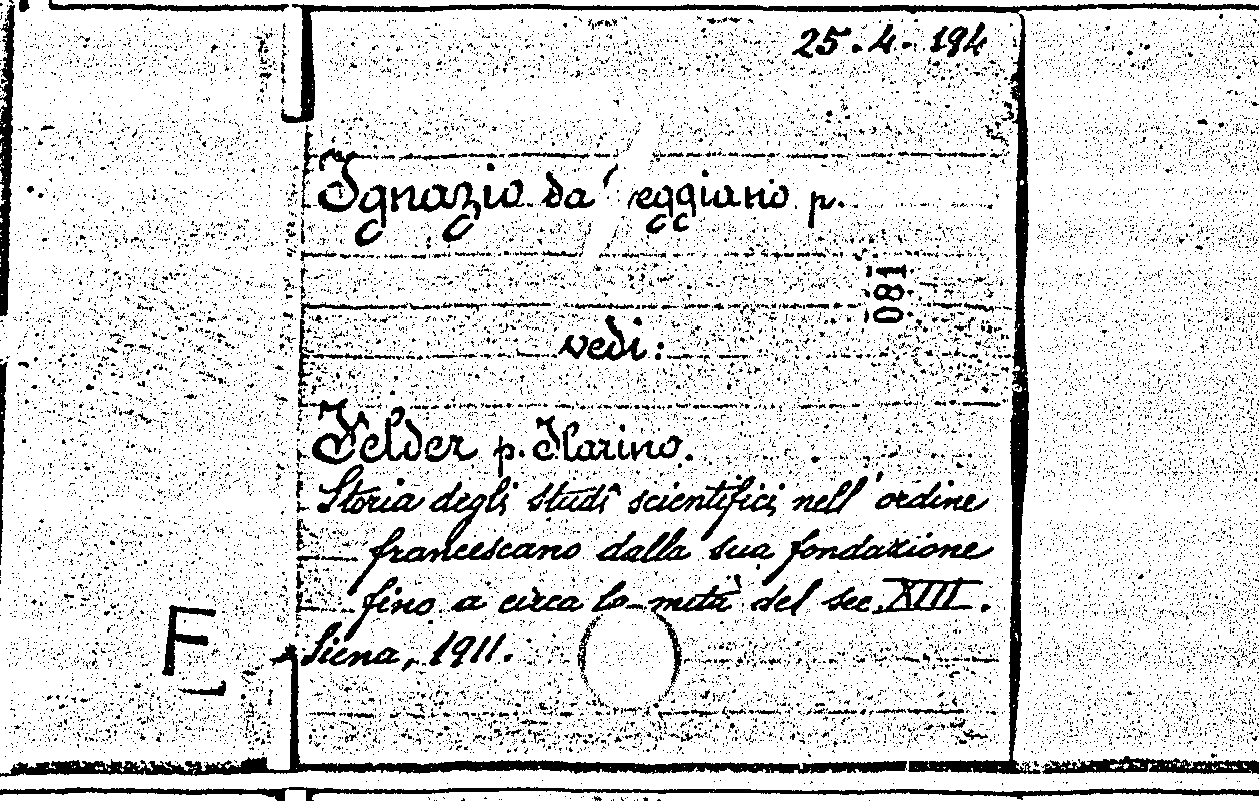 25.4.194
Ignazio da' eggiano p.
081
vedi:
Felder p. Ilarino.
Storia degli studî scientifici nell' ordine
francescano dalla sua fondazione
fino a circa la metà del sec. XIII.
Siena, 1911.
F